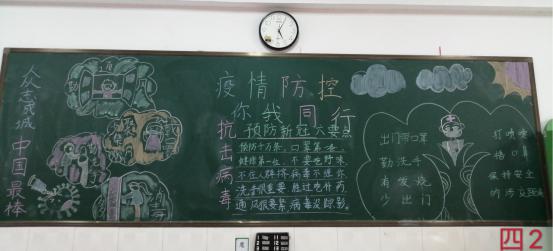 众志成城
中国最棒
疫情防控
你我同行
抗击病毒
预防新冠六要点
预防千万条，口罩第一条
健康第一位，不要吃野味
不在人群挤，病毒不惹你
洗手很重要，胜过吃补药
通风很要紧，病毒没踪影。
出门带口罩
勤洗手
有发烧
少出门
打喷嚏
捂口鼻
保持安全
的涉交距离
四2